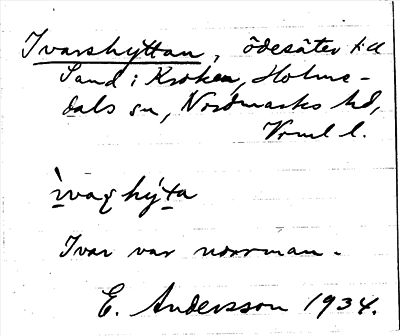 Ivarshyttan, ödesäter till
Sand i Kroken, Holme-
dals sn, Nordmarks hd,
Vrml l.
ìvaʂhýta
Ivar var norrman.
E. Andersson 1934.